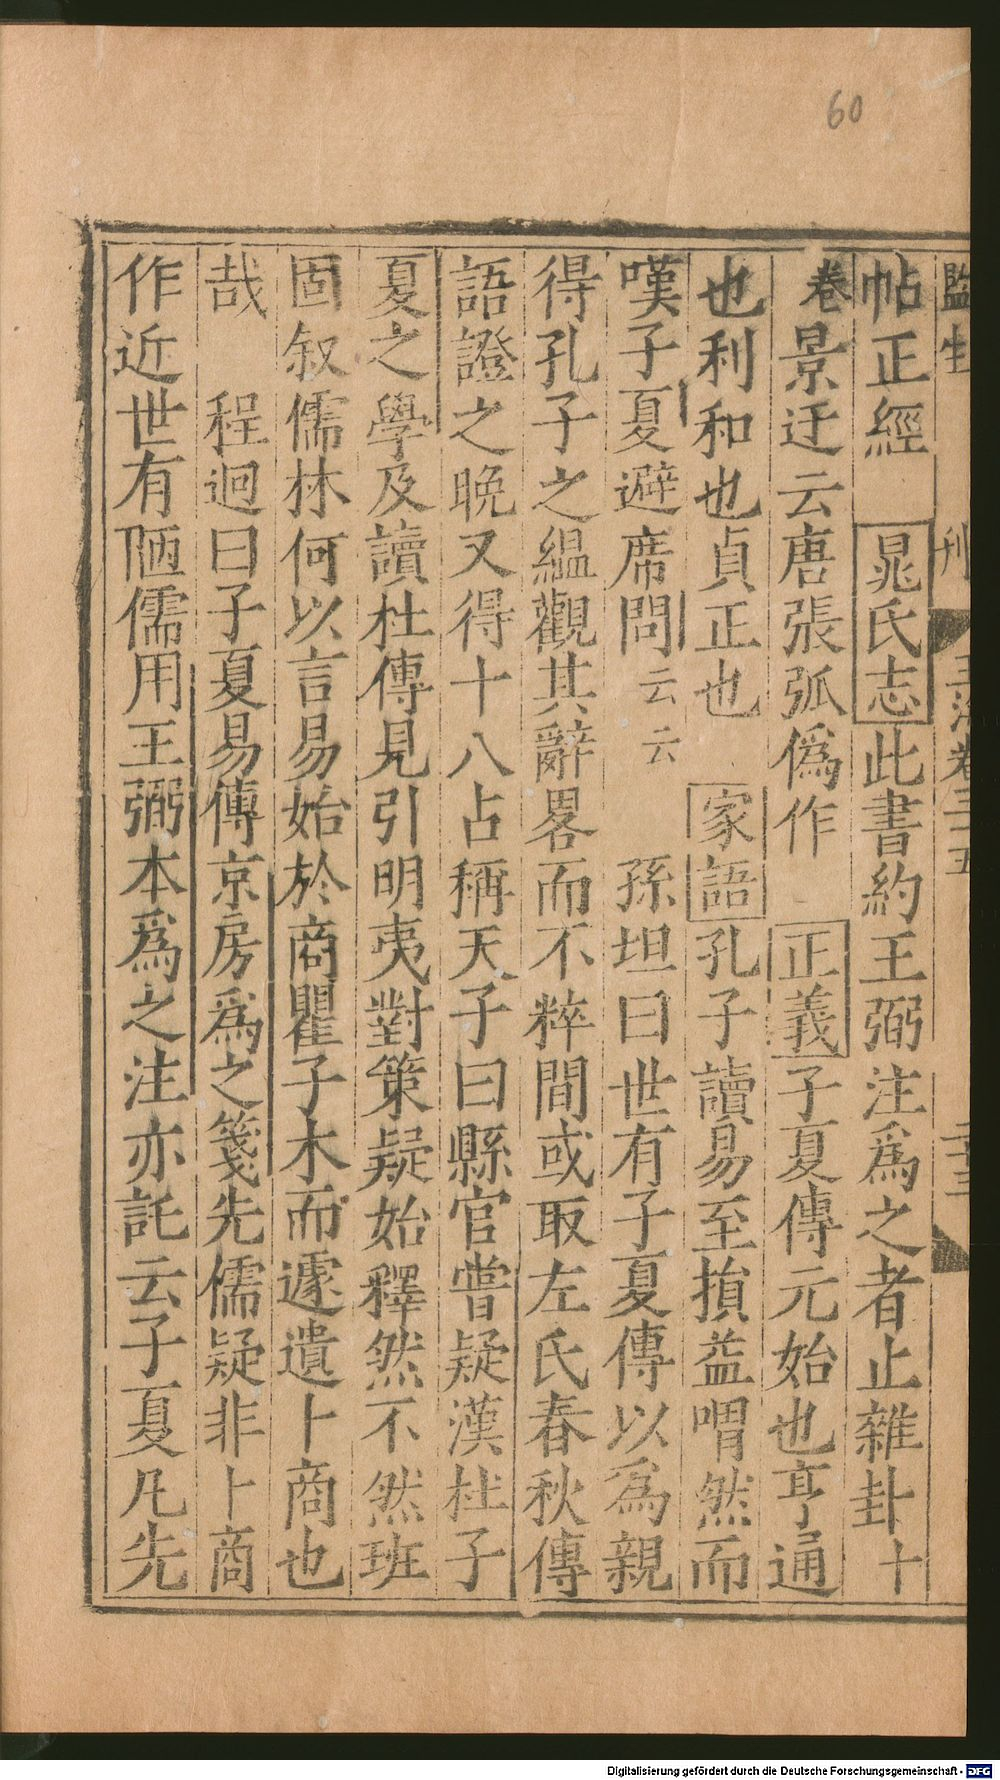 60
帖正經 晁氏志此書約王弼注爲之者止雜卦十
卷景迂云唐張弧僞作 正義子夏傳元始也亨通
也利和也貞正也 家語孔子讀易至損益喟然而
嘆子夏避席問云云 孫坦曰世有子夏傳以爲親
得孔子之緼觀其辭畧而不粹間或取左氏春秋傳
語證之晚又得十八占稱天子曰縣官嘗疑漢杜子
夏之學及讀杜傳見引明夷對策疑始釋然不然班
固叙儒林何以言易始於商瞿子木而遽遺卜商也
哉 程迥曰子夏易傳京房爲之箋先儒疑非卜商
作近世有陋儒用王弼本爲之注亦託云子夏凡先
Digitalisierung gefördert durch die Deutsche Forschungsgemeinschaft - DFG